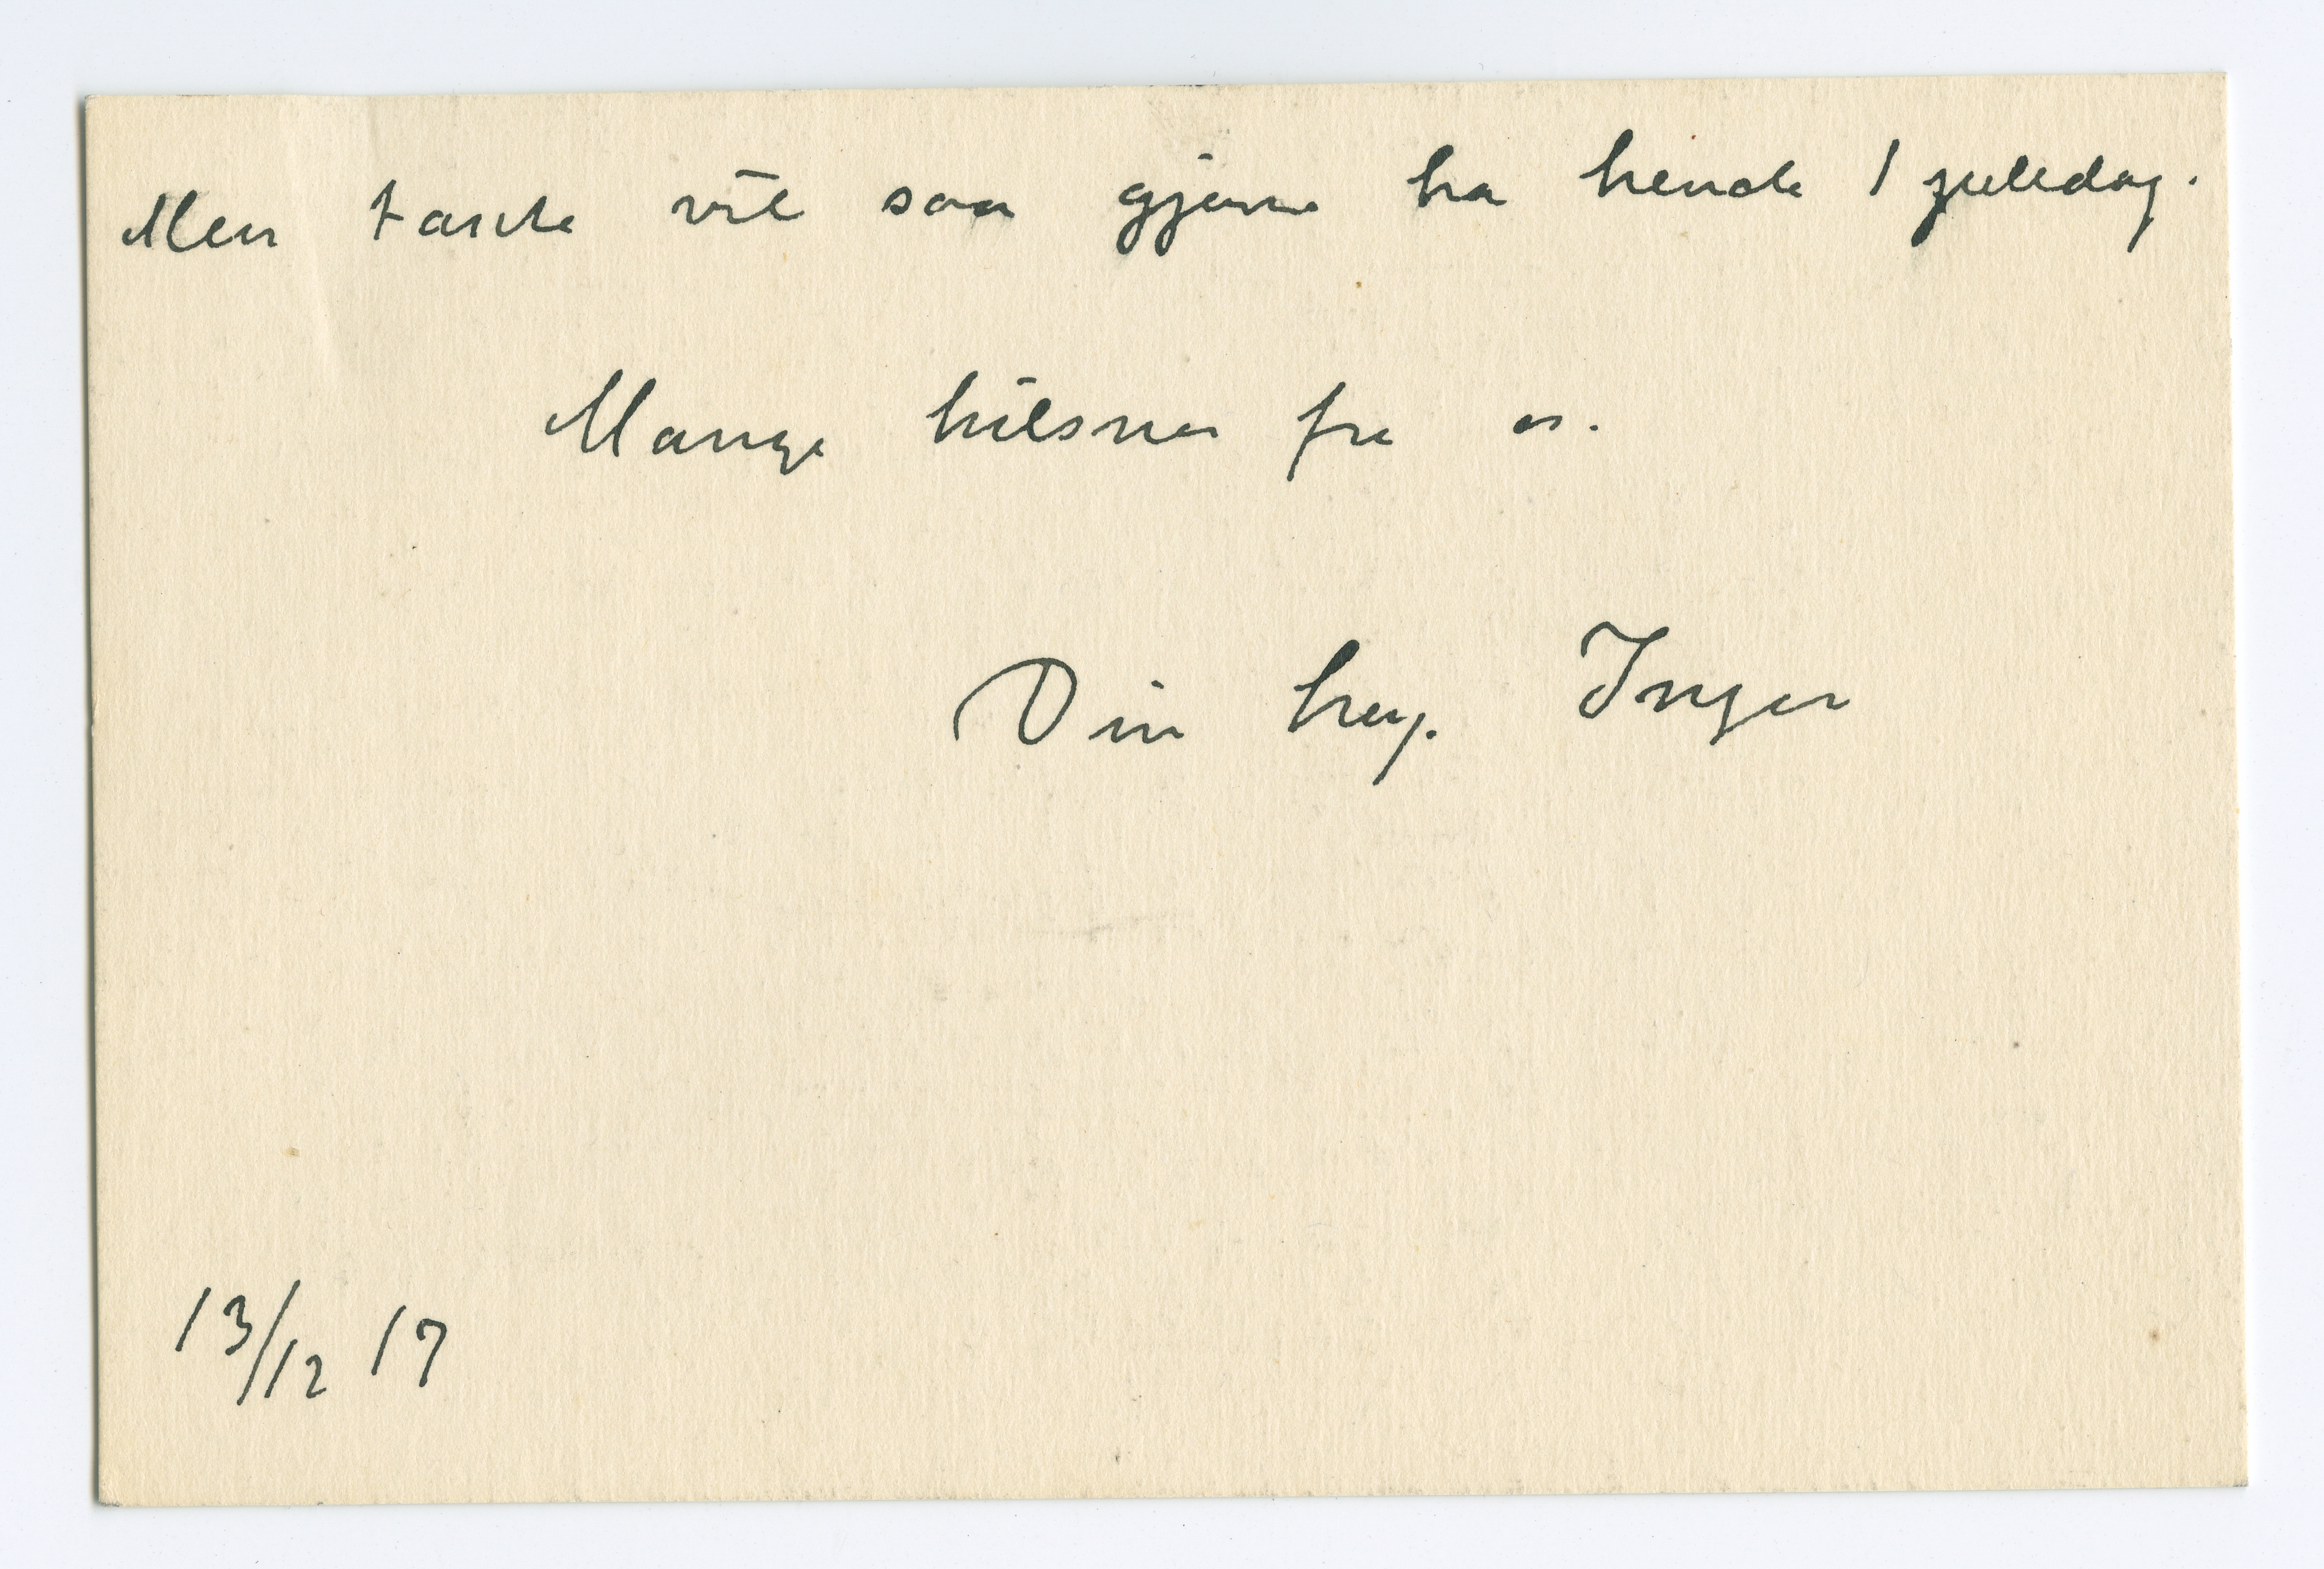 Men tante vil saa gjerne ha hende 1 juledag.
Mange hilsner fra os.
Din heng. Inger
13/12 17